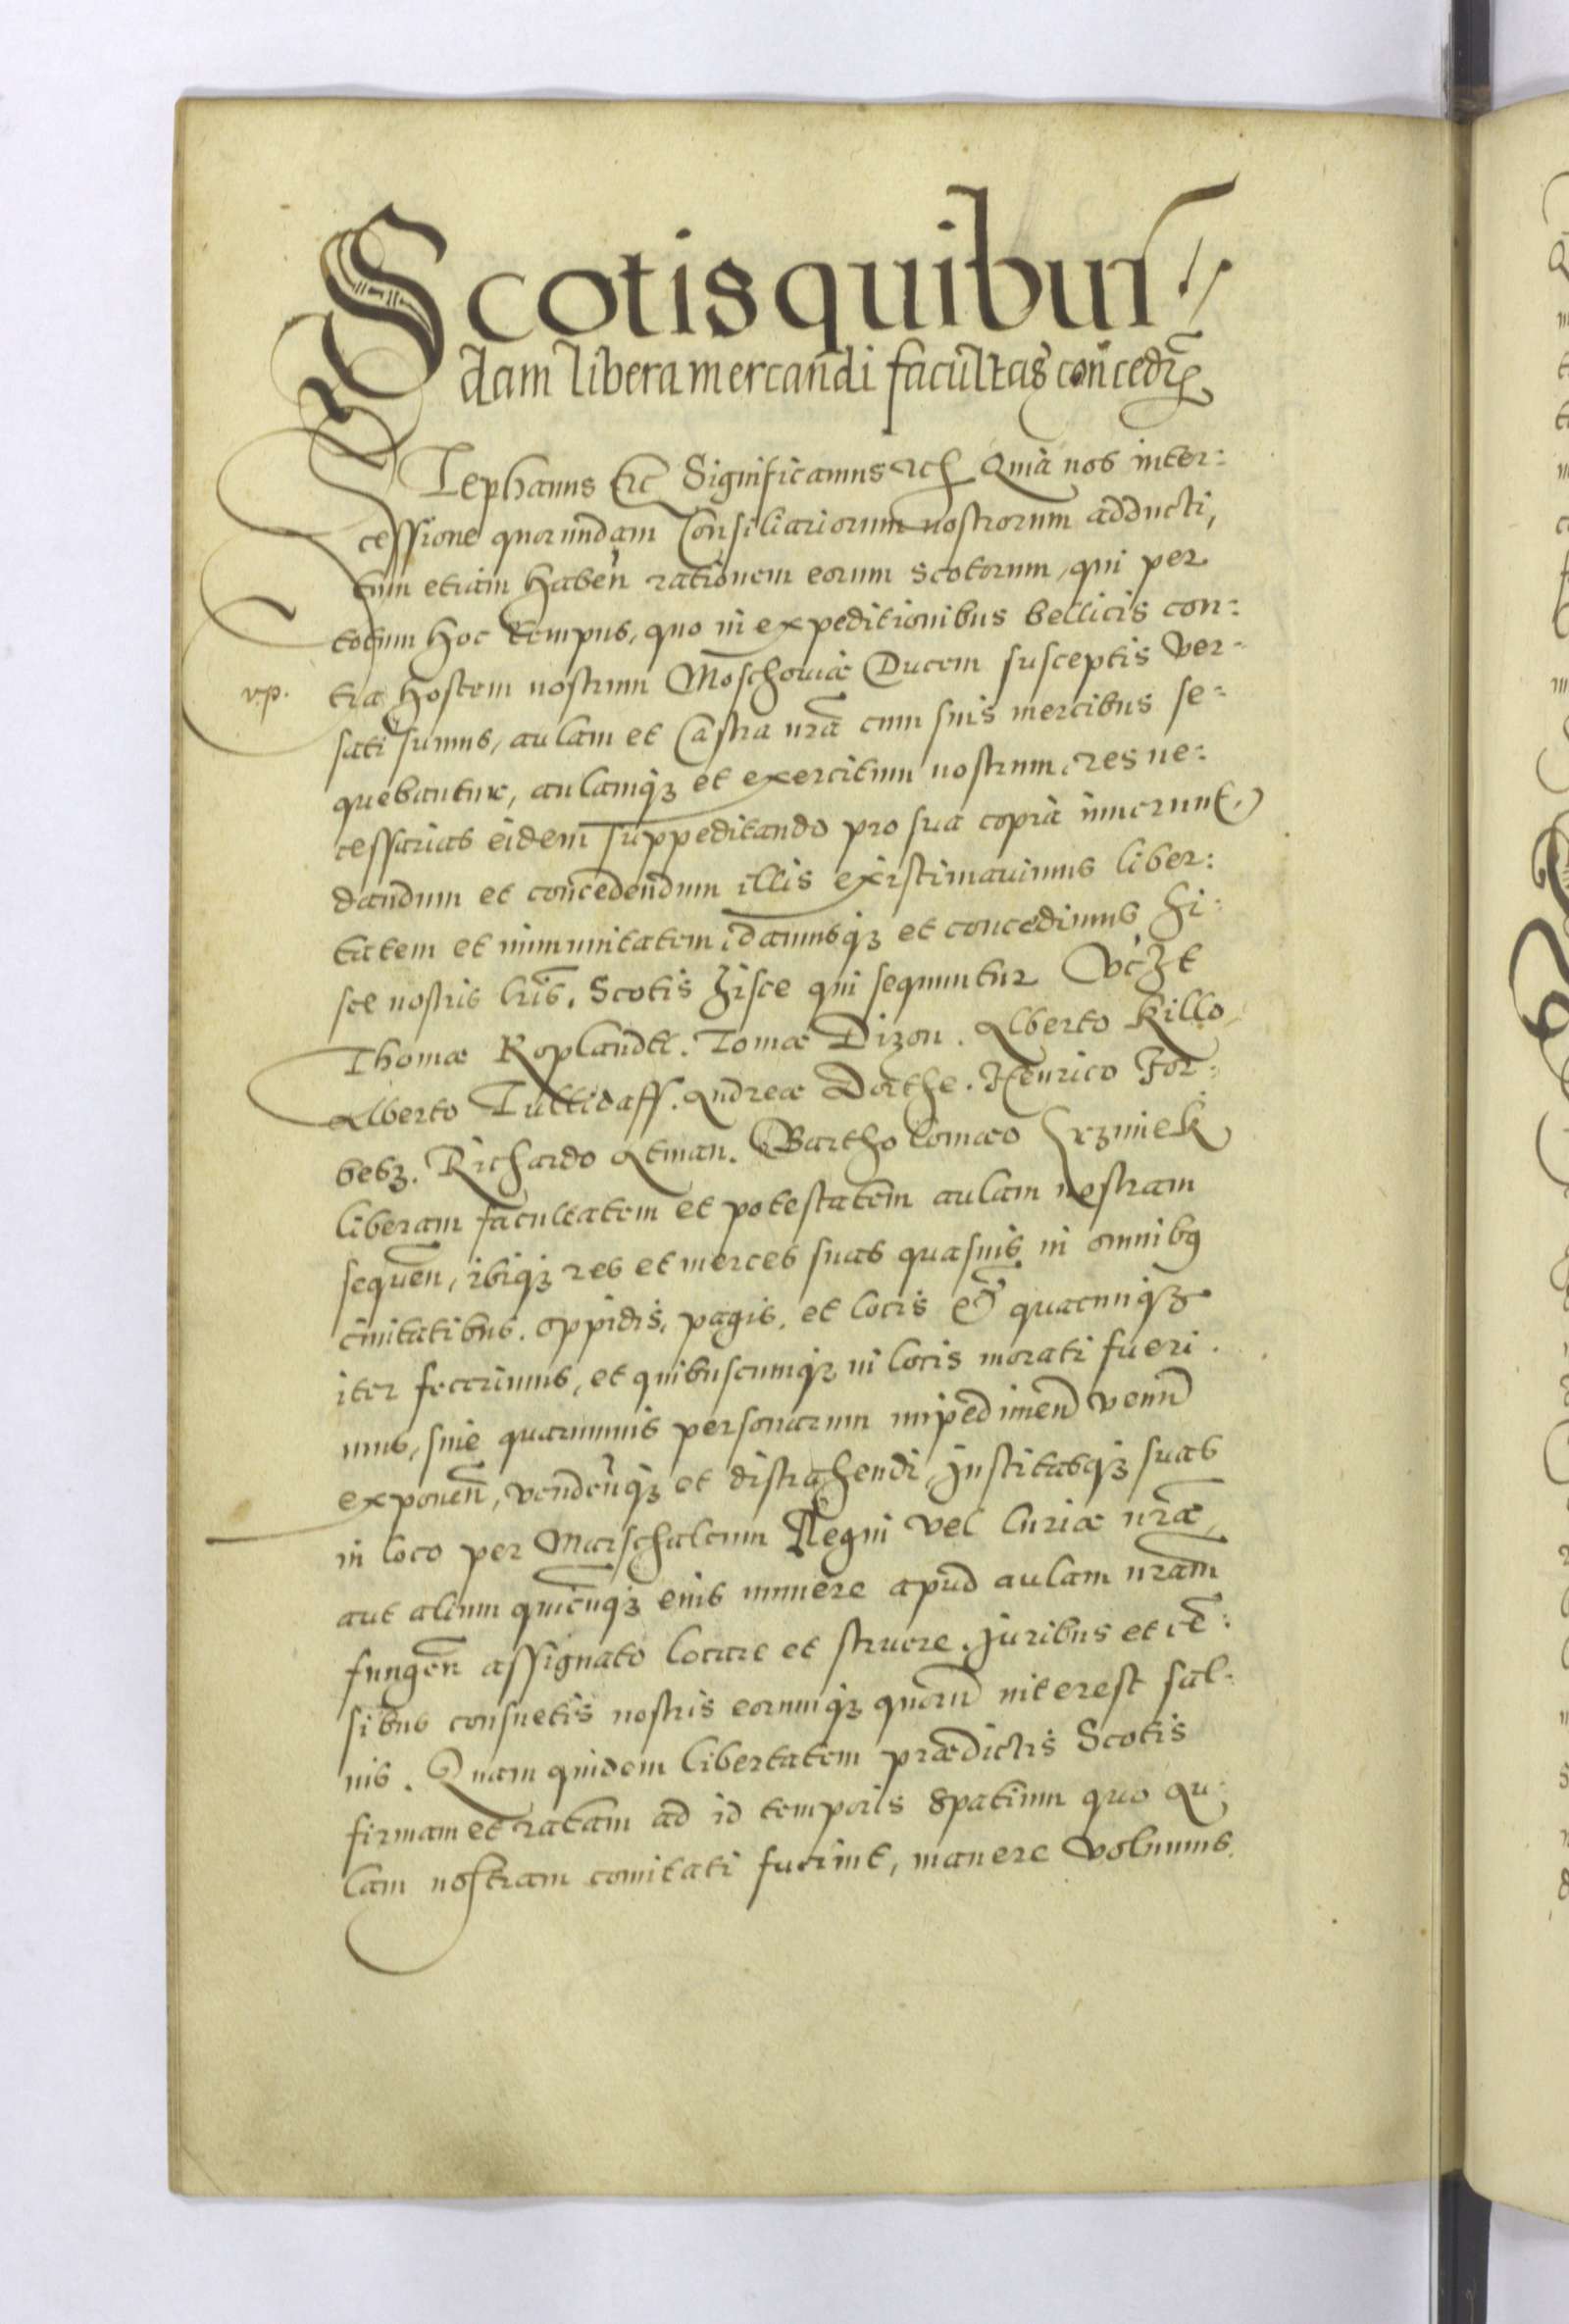 Scotis quibus
dam libera mercandi facultas conceditr
STephanus Etc Significamus etc Quia nos inter:
cessione quorundam Consiliariorum nostrorum adducti,
tum etiam haben rationem eorum Scotorum, qui per
totum hoc tempus, quo in expeditionibus bellicis con:
v.p. tra hostem nostrum Moschoviæ Ducem susceptis ver:
sati sumus, aulam et Castra nrã cum suis mercibus se:
quebantur, aulamq; et exercitum nostrum, res ne:
cessarias eidem suppeditando pro sua copia iuverunt,
dandum et concedendum illis existimavimus liber:
tatem et immunitatem, damusq; et concedimus hi:
sce nostris lris. Scotis hisce qui sequuntur Vczt
Thomæ Roplandt. Tomæ Dizon. Alberto Killo
Alberto Tullidaff. Andreæ Dorthe. Henrico For:
betz. Richardo Atman. Bartholomæo
liberam facultatem et potestatem aulam nostram
sequen, ibiq; res et merces suas quasuis, in omnibq
civitatibus. oppidis, pagis, et locis quacunq;
iter fecerimus, et quibuscumq; in locis morati fueri.
mus, sine quarumuis personarum impedimen venum
exponen, vendenq; et distrahendi, Institasq; suas
in loco per Marschalcum Regni vel Curiæ nræ,
aut alium quicunq; eius munere apud aulam nram
fungen assignato locare et struere. Juribus et ce:
sibus consuetis nostris eorumq; quorum interest sal:
uis. Quam quidem libertatem prædictis Scotis
firmam et ratam ad id temporis spatium quo au:
lam nostram comitati fuerint, manere volumus.